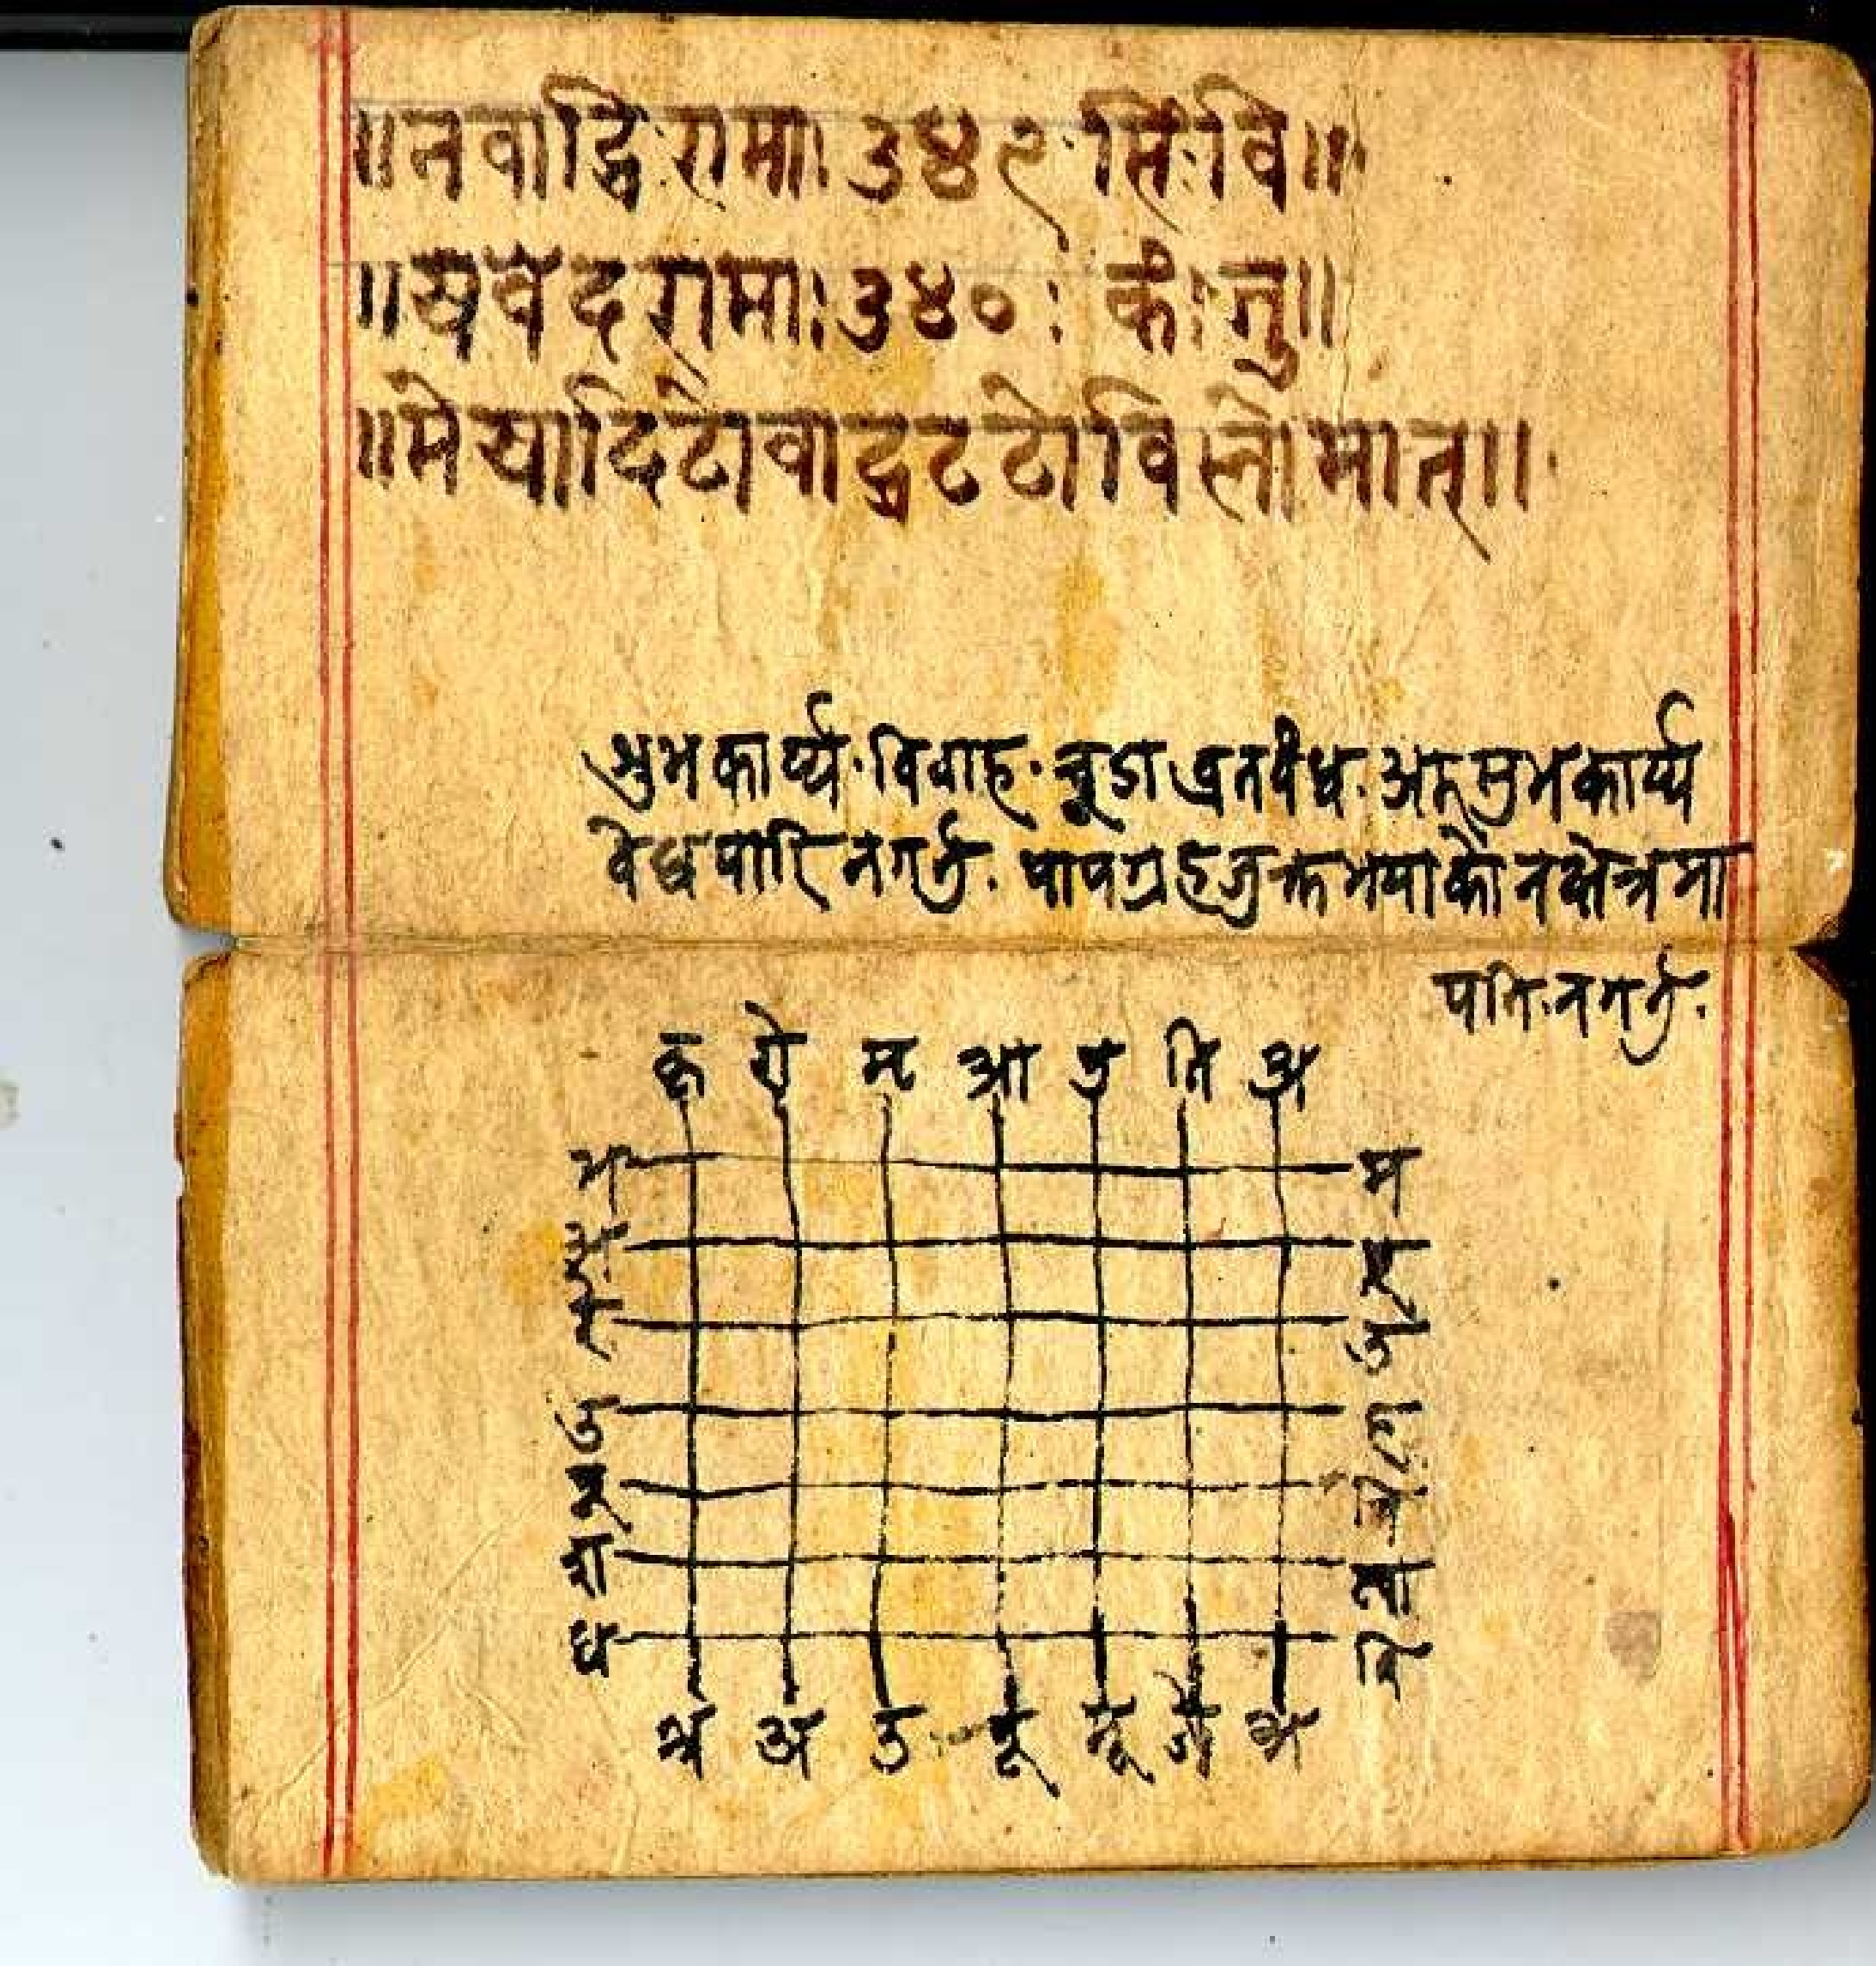 ॥नवाद्वि रामा। ३४२ सिं:वि॥
॥खवेदरामा:।३४०: कं:तु॥
॥मेयादिटोवाद्वटटोविलोमात्॥
शुभकार्य्य·विवाह·चूडा व्रतवंध·अरुसुभकार्य्य
वेधपारि नगर्नु. पापग्रहजुक्तभयाको नक्षेत्रमा
पनि.नगर्नु.
कृ रो मृ आ पु ति अ
भ म
अ पू
रे उ
उ ह
पू चि
श स्वा
ध वि
श्र अ उ पू मू जे अ